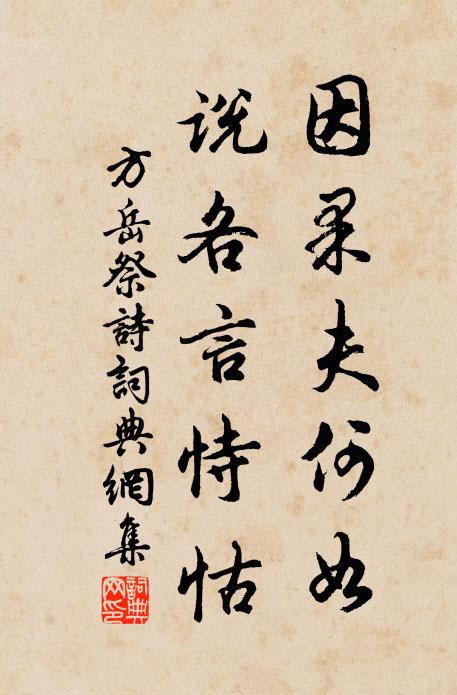 因果夫何如
说各言恃怙
方岳祭詩詞典網集
詞典网印